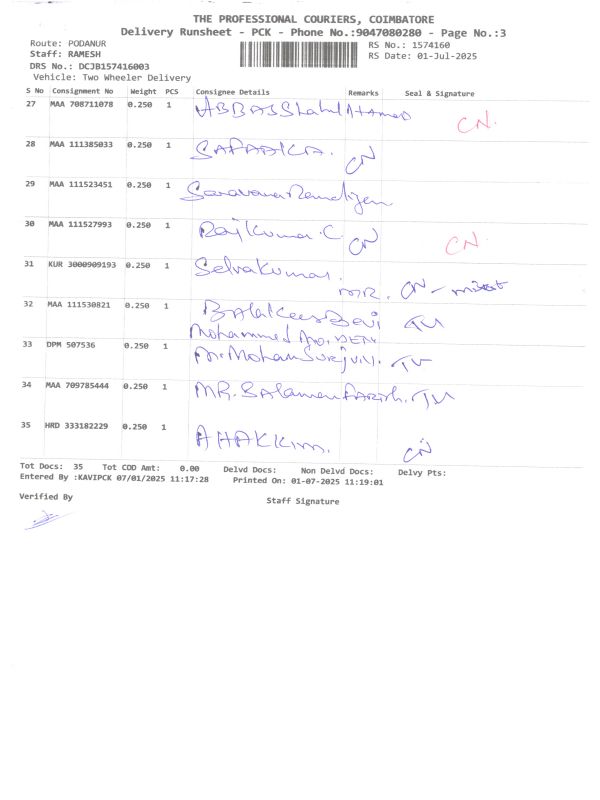 THE PROFESSIONAL COURIERS, COIMBATORE
Delivery Runsheet - PCK - Phone No.:9047080280 - Page No.:3
Route: PODANUR RS No.: 1574160
Staff: RAMESH RS Date: 01-Jul-2025
DRS No.: DCJB157416003
Vehicle: Two Wheeler Delivery
S No Consignment No Weight PCS Consignee Details Remarks Seal & Signature
27 MAA 708711078 0.250 1 ABBAS Shahul Hamed CN.
28 MAA 111385033 0.250 1 CN
29 MAA 111523451 0.250 1 Saravana
30 MAA 111527993 0.250 1 Rajkumar.C CN CN.
31 KUR 3000909193 0.250 1 Selvakumar.
MR. CN -
32 MAA 111530821 0.250 1 Devi TU
Mohammed
33 DPM 507536 0.250 1 A.Mohan TU
34 MAA 709785444 0.250 1 MR. TU
35 HRD 333182229 0.250 1 A HAKKIM. CN
Tot Docs: 35 Tot COD Amt: 0.00 Delvd Docs: Non Delvd Docs: Delvy Pts:
Entered By :KAVIPCK 07/01/2025 11:17:28 Printed On: 01-07-2025 11:19:01
Verified By Staff Signature